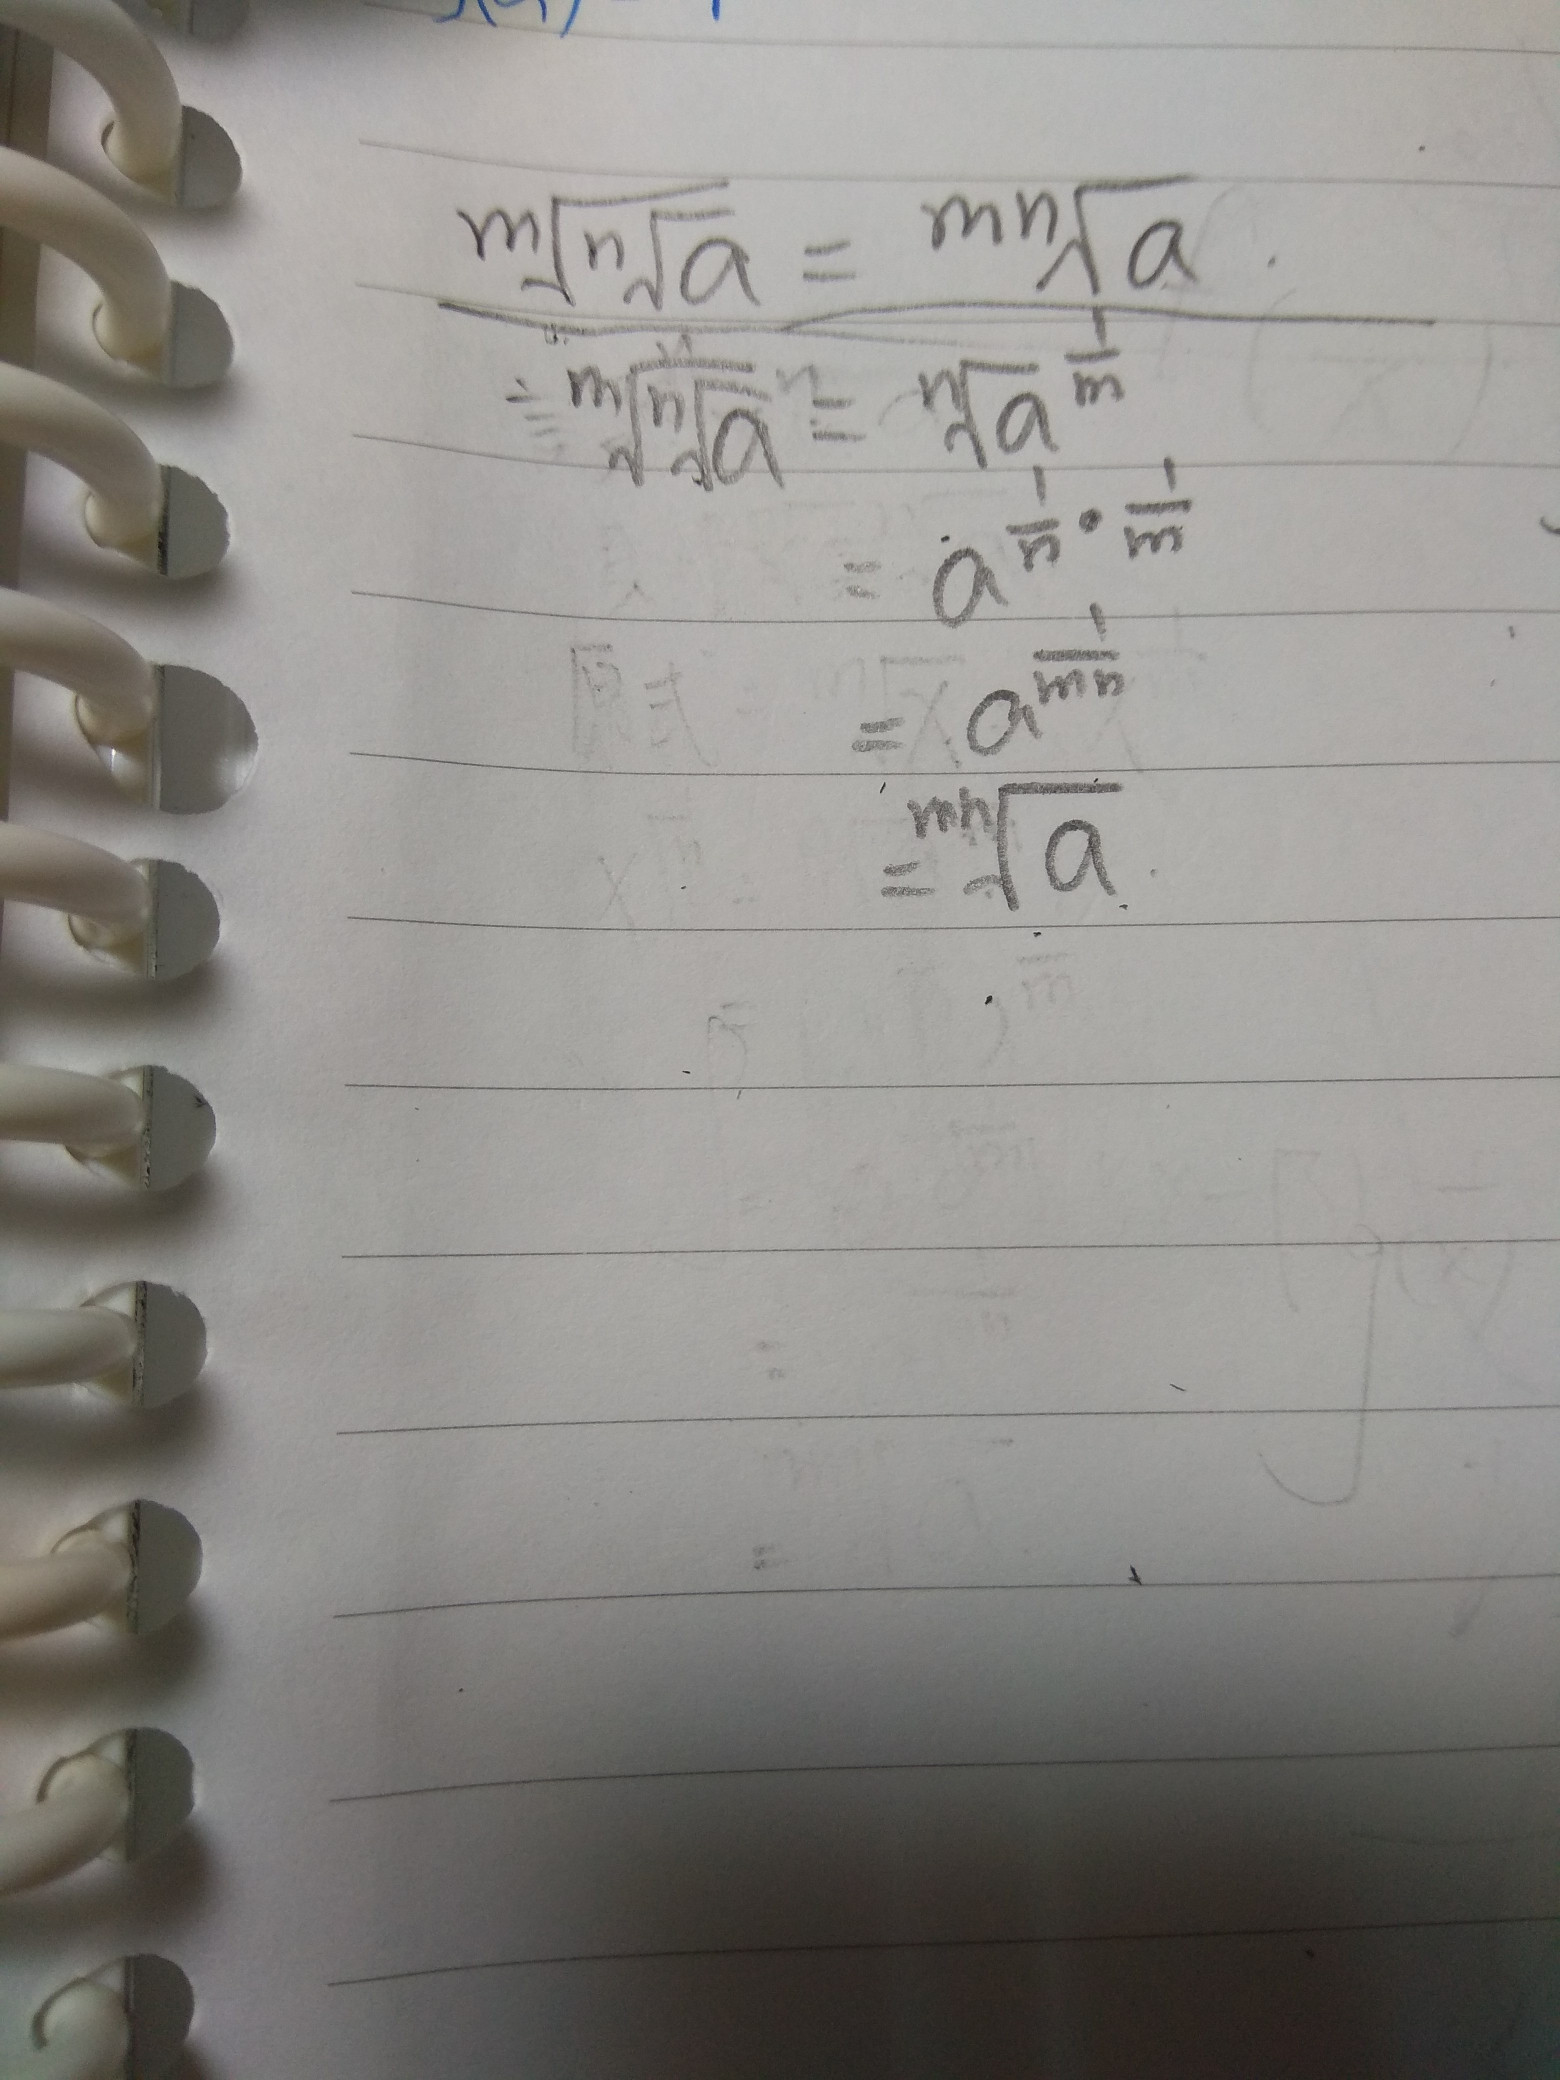 ᵐ√(ⁿ√a) = ᵐⁿ√a.
ᵐ√(ⁿ√a) = ⁿ√a^(1/m)
= a^(1/n · 1/m)
= a^(1/mn)
= ᵐⁿ√a.